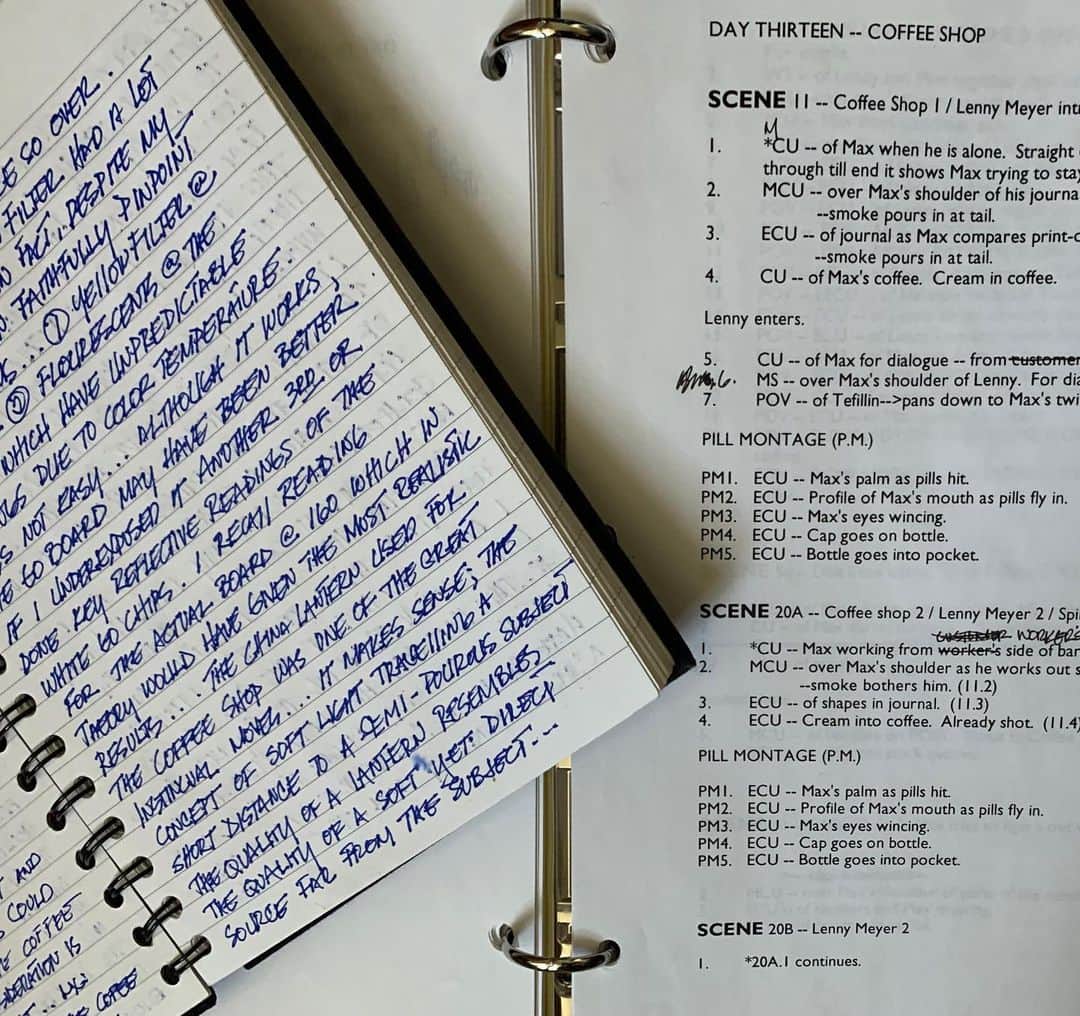 E SO OVER.
FILTER HAD A LOT
N FACT.. DESPITE MY
FAITHFULLY PINPOINT
... ① YELLOW FILTER @
② FLOURESCENTS @ THE
WHICH HAVE UNPREDICTABLE
NGS DUE TO COLOR TEMPERATURE.
S NOT EASY... ALTHOUGH IT WORKS,
TE GO BOARD MAY HAVE BEEN BETTER
IF I UNDEREXPOSED IT ANOTHER 3RD OR
DONE KEY REFLECTIVE READINGS OF THE
WHITE GO CHIPS. I RECALL READING
FOR THE ACTUAL BOARD @ 160 WHICH IN
THEORY WOULD HAVE GIVEN THE MOST REALISTIC
RESULTS... THE CHINA LANTERN USED FOR
THE COFFEE SHOP WAS ONE OF THE GREAT
MOVES... IT MAKES SENSE; THE
CONCEPT OF SOFT LIGHT TRAVELLING A
SHORT DISTANCE TO A SEMI-POUROUS SUBJECT
THE QUALITY OF A LANTERN RESEMBLES
THE QUALITY OF A SOFT YET DIRECT
SOURCE FAR FROM THE SUBJECT...
AND
COULD
E COFFEE
SIDERATION IS
COFFEE
DAY THIRTEEN -- COFFEE SHOP
SCENE 11 -- Coffee Shop 1 / Lenny Meyer intr
M
1. *CU -- of Max when he is alone. Straight
through till end it shows Max trying to stay
2. MCU -- over Max's shoulder of his journa
--smoke pours in at tail.
3. ECU -- of journal as Max compares print-o
--smoke pours in at tail.
4. CU -- of Max's coffee. Cream in coffee.
Lenny enters.
5. CU -- of Max for dialogue -- from customer
6. MS -- over Max's shoulder of Lenny. For dia
7. POV -- of Tefillin-->pans down to Max's twi
PILL MONTAGE (P.M.)
PM1. ECU -- Max's palm as pills hit.
PM2. ECU -- Profile of Max's mouth as pills fly in.
PM3. ECU -- Max's eyes wincing.
PM4. ECU -- Cap goes on bottle.
PM5. ECU -- Bottle goes into pocket.
SCENE 20A -- Coffee shop 2 / Lenny Meyer 2 / Spi
CUSTOMER WORKERS
1. *CU -- Max working from worker's side of bar
2. MCU -- over Max's shoulder as he works out s
--smoke bothers him. (11.2)
3. ECU -- of shapes in journal. (11.3)
4. ECU -- Cream into coffee. Already shot. (11.4)
PILL MONTAGE (P.M.)
PM1. ECU -- Max's palm as pills hit.
PM2. ECU -- Profile of Max's mouth as pills fly in.
PM3. ECU -- Max's eyes wincing.
PM4. ECU -- Cap goes on bottle.
PM5. ECU -- Bottle goes into pocket.
SCENE 20B -- Lenny Meyer 2
1. *20A.1 continues.